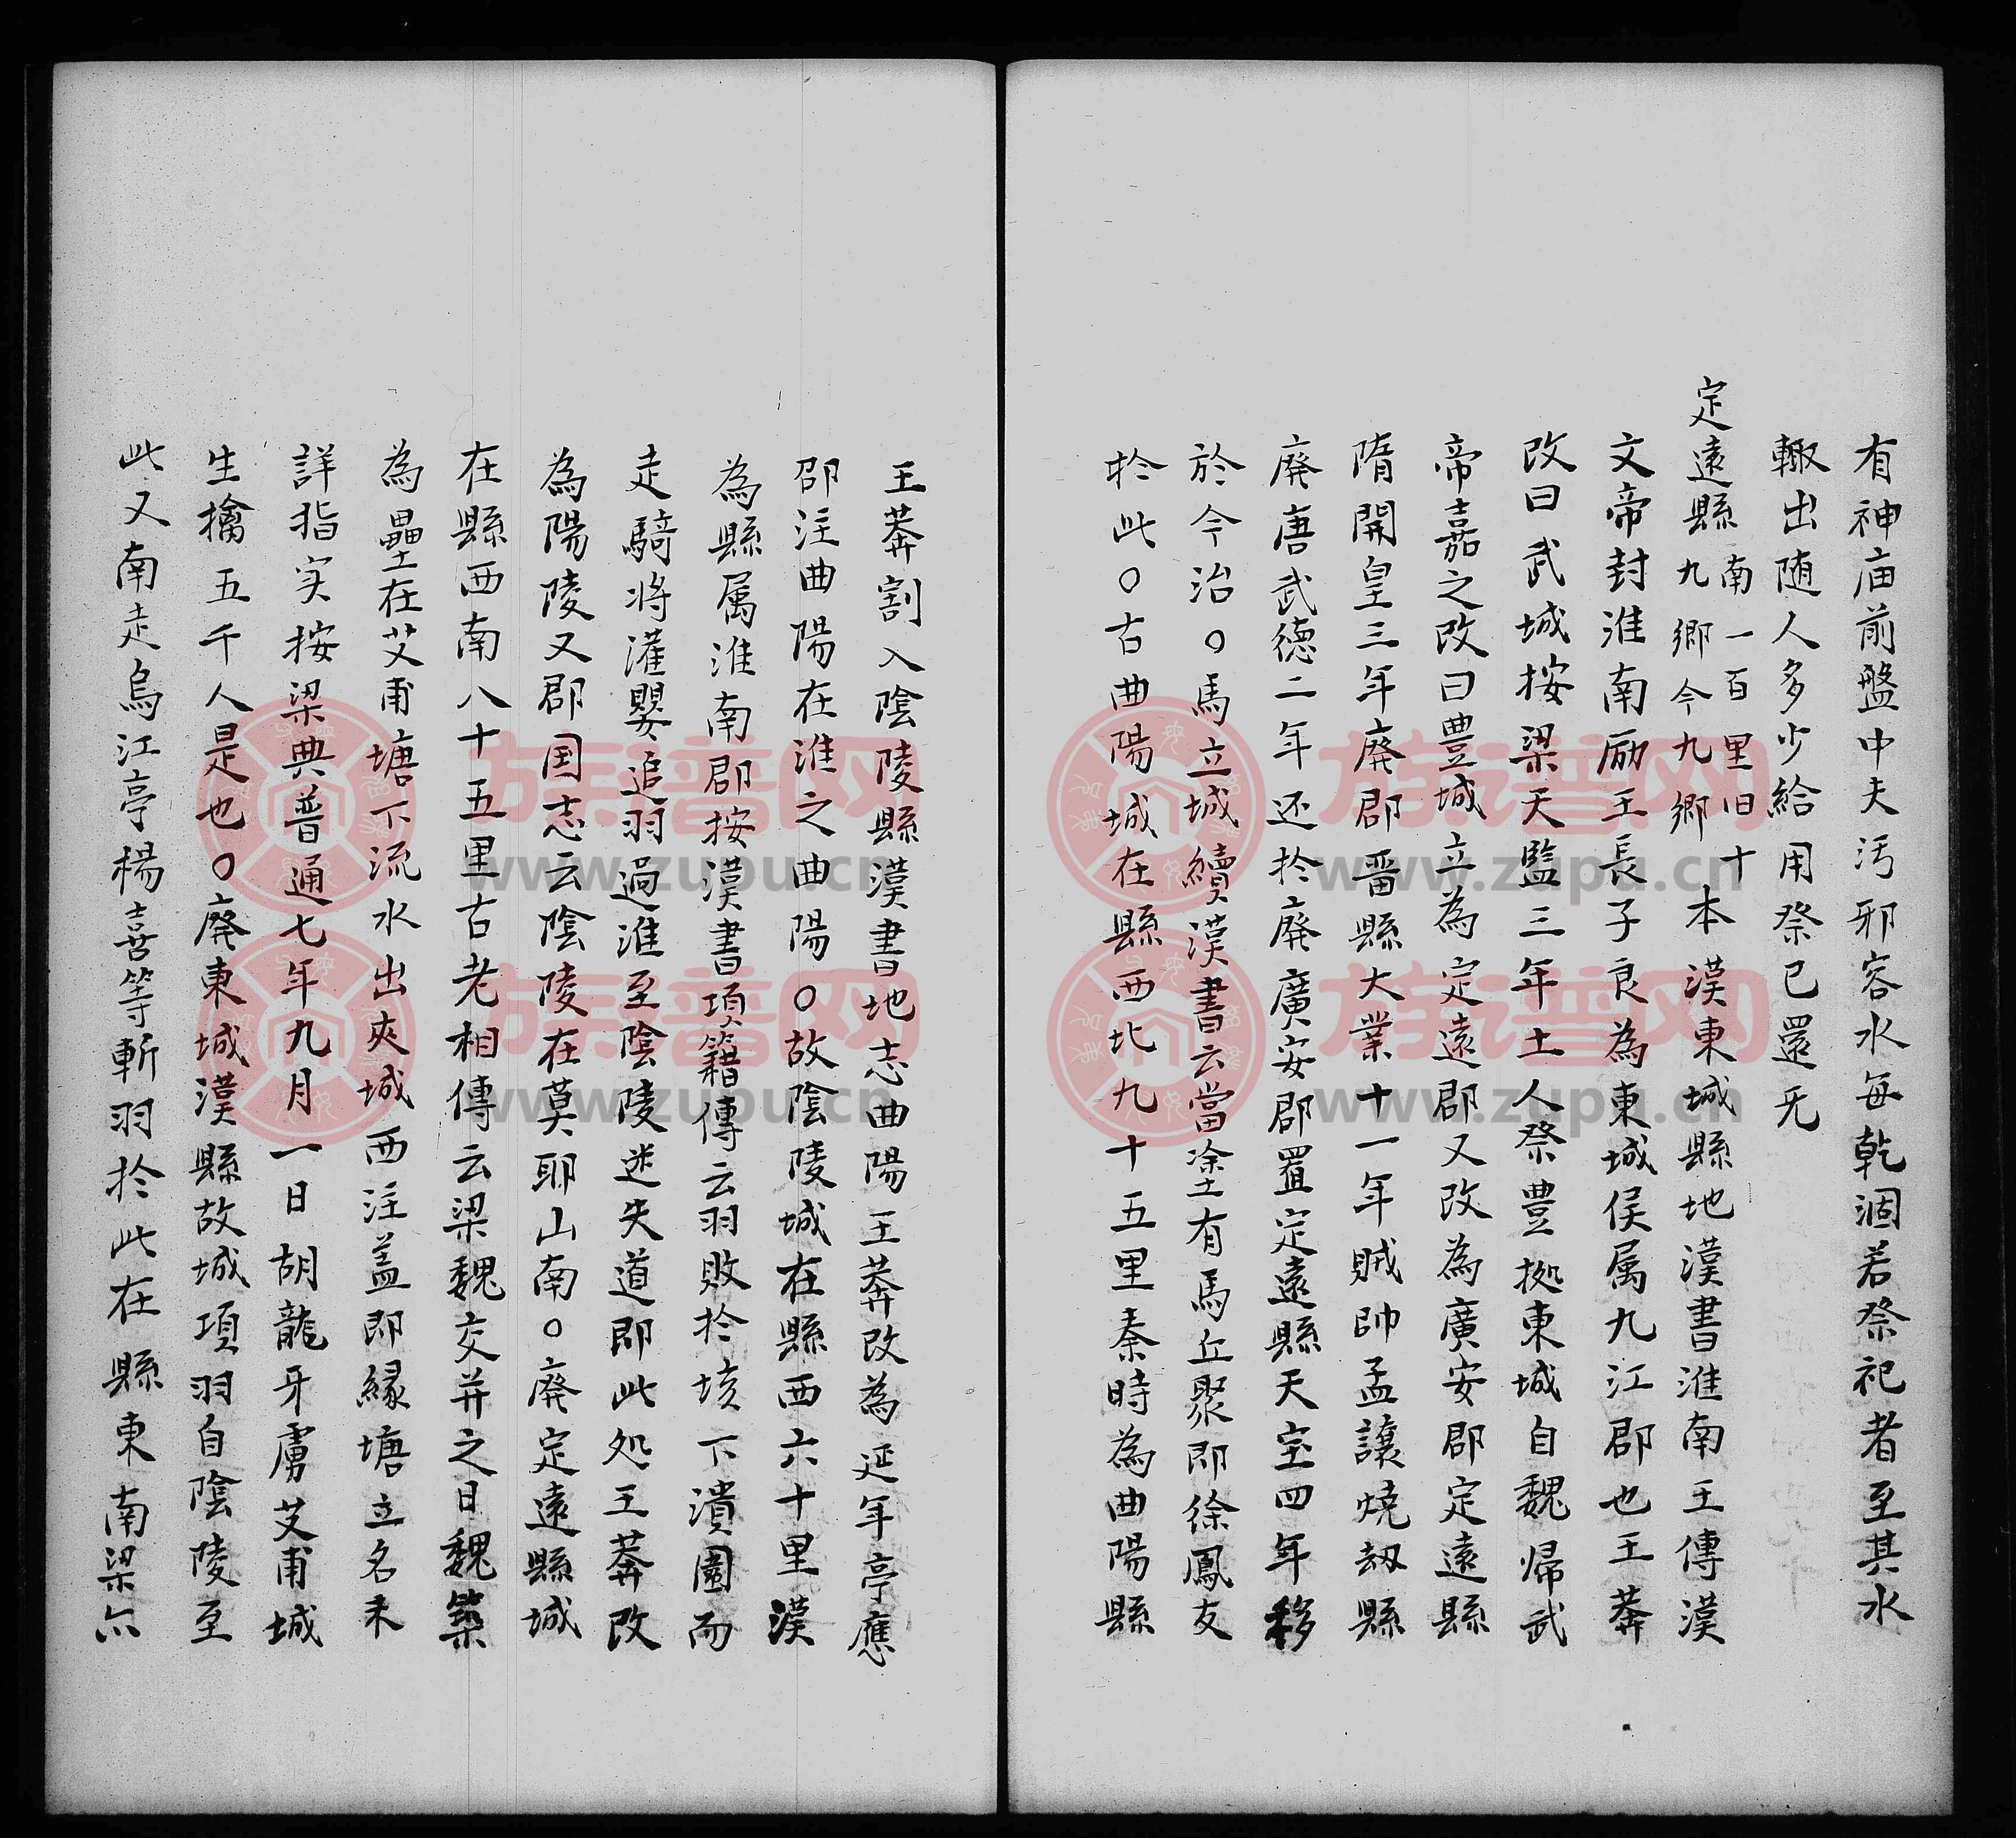 有神庙前盤中夫汚邪容水每乾涸若祭祀者至其水
輙出随人多少給用祭已還无
定遠縣南一百里旧十九鄉今九鄉本漢東城縣地漢書淮南王傳漢
文帝封淮南厲王長子良為東城侯属九江郡也王莽
改曰武城按梁天監三年土人祭豊拠東城自魏帰武
帝嘉之改曰豊城立為定遠郡又改為廣安郡定遠縣
隋開皇三年廢郡畱縣大業十一年賊帥孟讓燒刼縣
廢唐武德二年还扵廢廣安郡置定遠縣天宝四年移
於今治○馬立城續漢書云當塗有馬丘聚即徐鳳友
扵此○古曲陽城在縣西北九十五里秦時為曲陽縣
王莽割入陰陵縣漢書地志曲陽王莽改為延年亭應
邵注曲陽在淮之曲陽○故陰陵城在縣西六十里漢
為縣属淮南郡按漢書項籍傳云羽敗扵垓下潰圍而
走騎將灌嬰追羽過淮至陰陵迷失道即此処王莽改
為陽陵又郡国志云陰陵在莫耶山南○廢定遠縣城
在縣西南八十五里古老相傳云梁魏交并之日魏築
為壘在艾甫塘下流水出夾城西注盖即緣塘立名未
詳指实按梁典普通七年九月一日胡龍牙虜艾甫城
生擒五千人是也○廢東城漢縣故城項羽自陰陵至
此又南走烏江亭楊喜等斬羽扵此在縣東南梁六
族谱网
www.zupu.cn
族谱网
www.zupu.cn
族谱网
www.zupu.cn
族谱网
www.zupu.cn